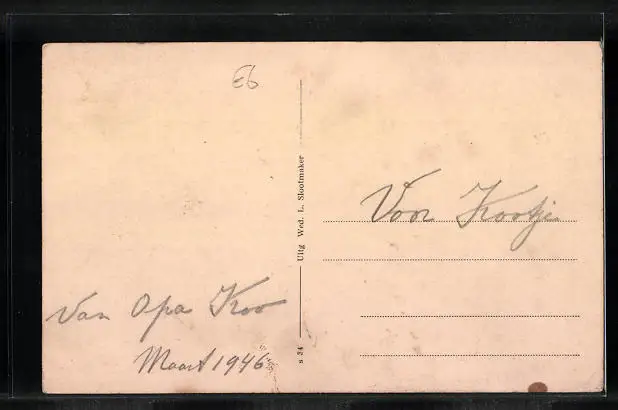 E6
Uitg Wed. L. Slootmaker
s 34
Voor Kootje
van Opa Koo
Maart 1946